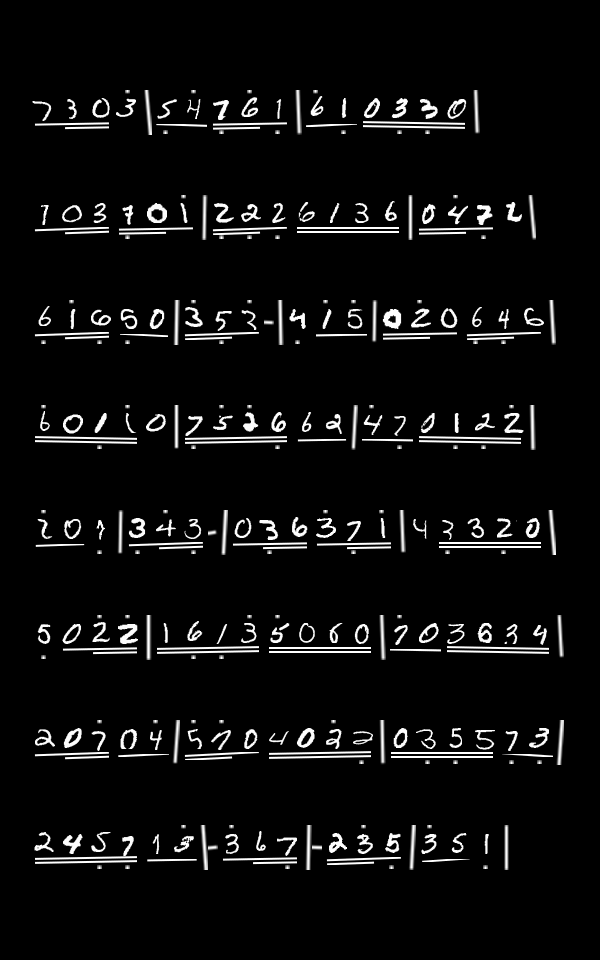 7 3 0 3 | 5 4 7 6 1 | 6 1 0 3 3 0 |
7 0 3 7 0 1 | 2 2 2 6 1 3 6 | 0 4 7 2 |
6 1 6 5 0 | 3 5 3 - | 4 1 5 | 0 2 0 6 4 6 |
6 0 1 1 0 | 7 5 2 6 6 2 | 4 7 0 1 2 2 |
2 0 1 | 3 4 3 - | 0 3 6 3 7 1 | 4 3 3 2 0 |
5 0 2 2 | 1 6 1 3 5 0 6 0 | 7 0 3 6 3 4 |
2 0 7 0 4 | 5 7 0 4 0 2 2 | 0 3 5 5 7 3 |
2 4 5 7 1 3 | - 3 6 7 | - 2 3 5 | 3 5 1 |